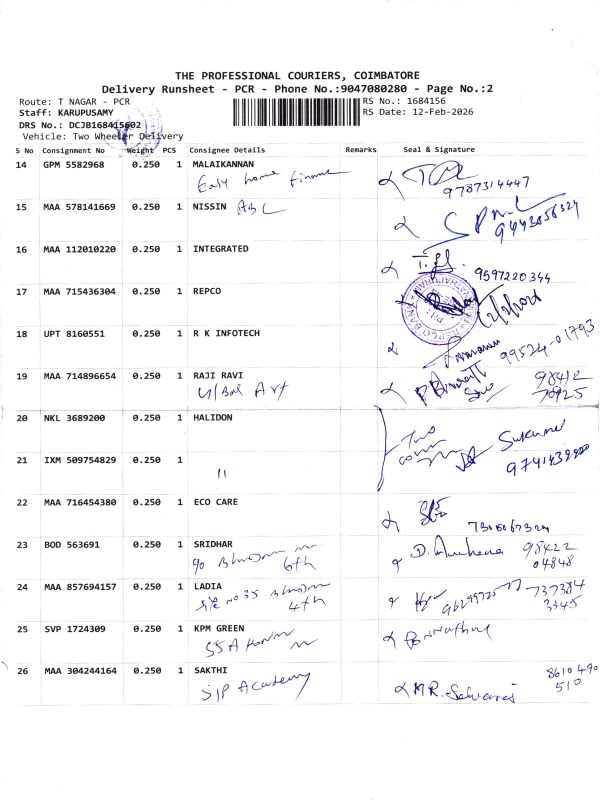 THE PROFESSIONAL COURIERS, COIMBATORE
Delivery Runsheet - PCR - Phone No.:9047080280 - Page No.:2
Route: T NAGAR - PCR
Staff: KARUPUSAMY
DRS No.: DCJB168415602
Vehicle: Two Wheeler Delivery
RS No.: 1684156
RS Date: 12-Feb-2026
S No Consignment No Weight PCS Consignee Details Remarks Seal & Signature
14 GPM 5582968 0.250 1 MALAIKANNAN
Easy home finance
9787314447
15 MAA 578141669 0.250 1 NISSIN ABC
16 MAA 112010220 0.250 1 INTEGRATED
9597220344
17 MAA 715436304 0.250 1 REPCO
18 UPT 8160551 0.250 1 R K INFOTECH
99524-01793
19 MAA 714896654 0.250 1 RAJI RAVI
98412
70925
20 NKL 3689200 0.250 1 HALIDON
21 IXM 509754829 0.250 1
11
Sukumar
22 MAA 716454380 0.250 1 ECO CARE
23 BOD 563691 0.250 1 SRIDHAR
6th
98422
04848
24 MAA 857694157 0.250 1 LADIA
4th
737384
3345
25 SVP 1724309 0.250 1 KPM GREEN
26 MAA 304244164 0.250 1 SAKTHI
SIP Academy
M.R. Selvaraj
8610490
510